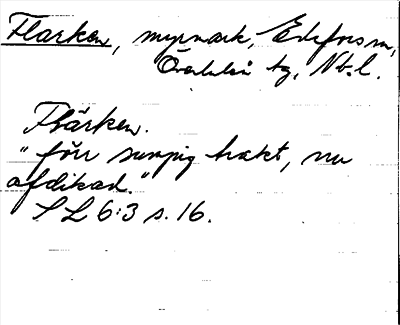 Flarken, myrmark, Edefors sn,
Överluleå tg, Nb. l.
Flärken.
"förr sumpig trakt, nu
afdikad."
SL 6:3 s. 16.